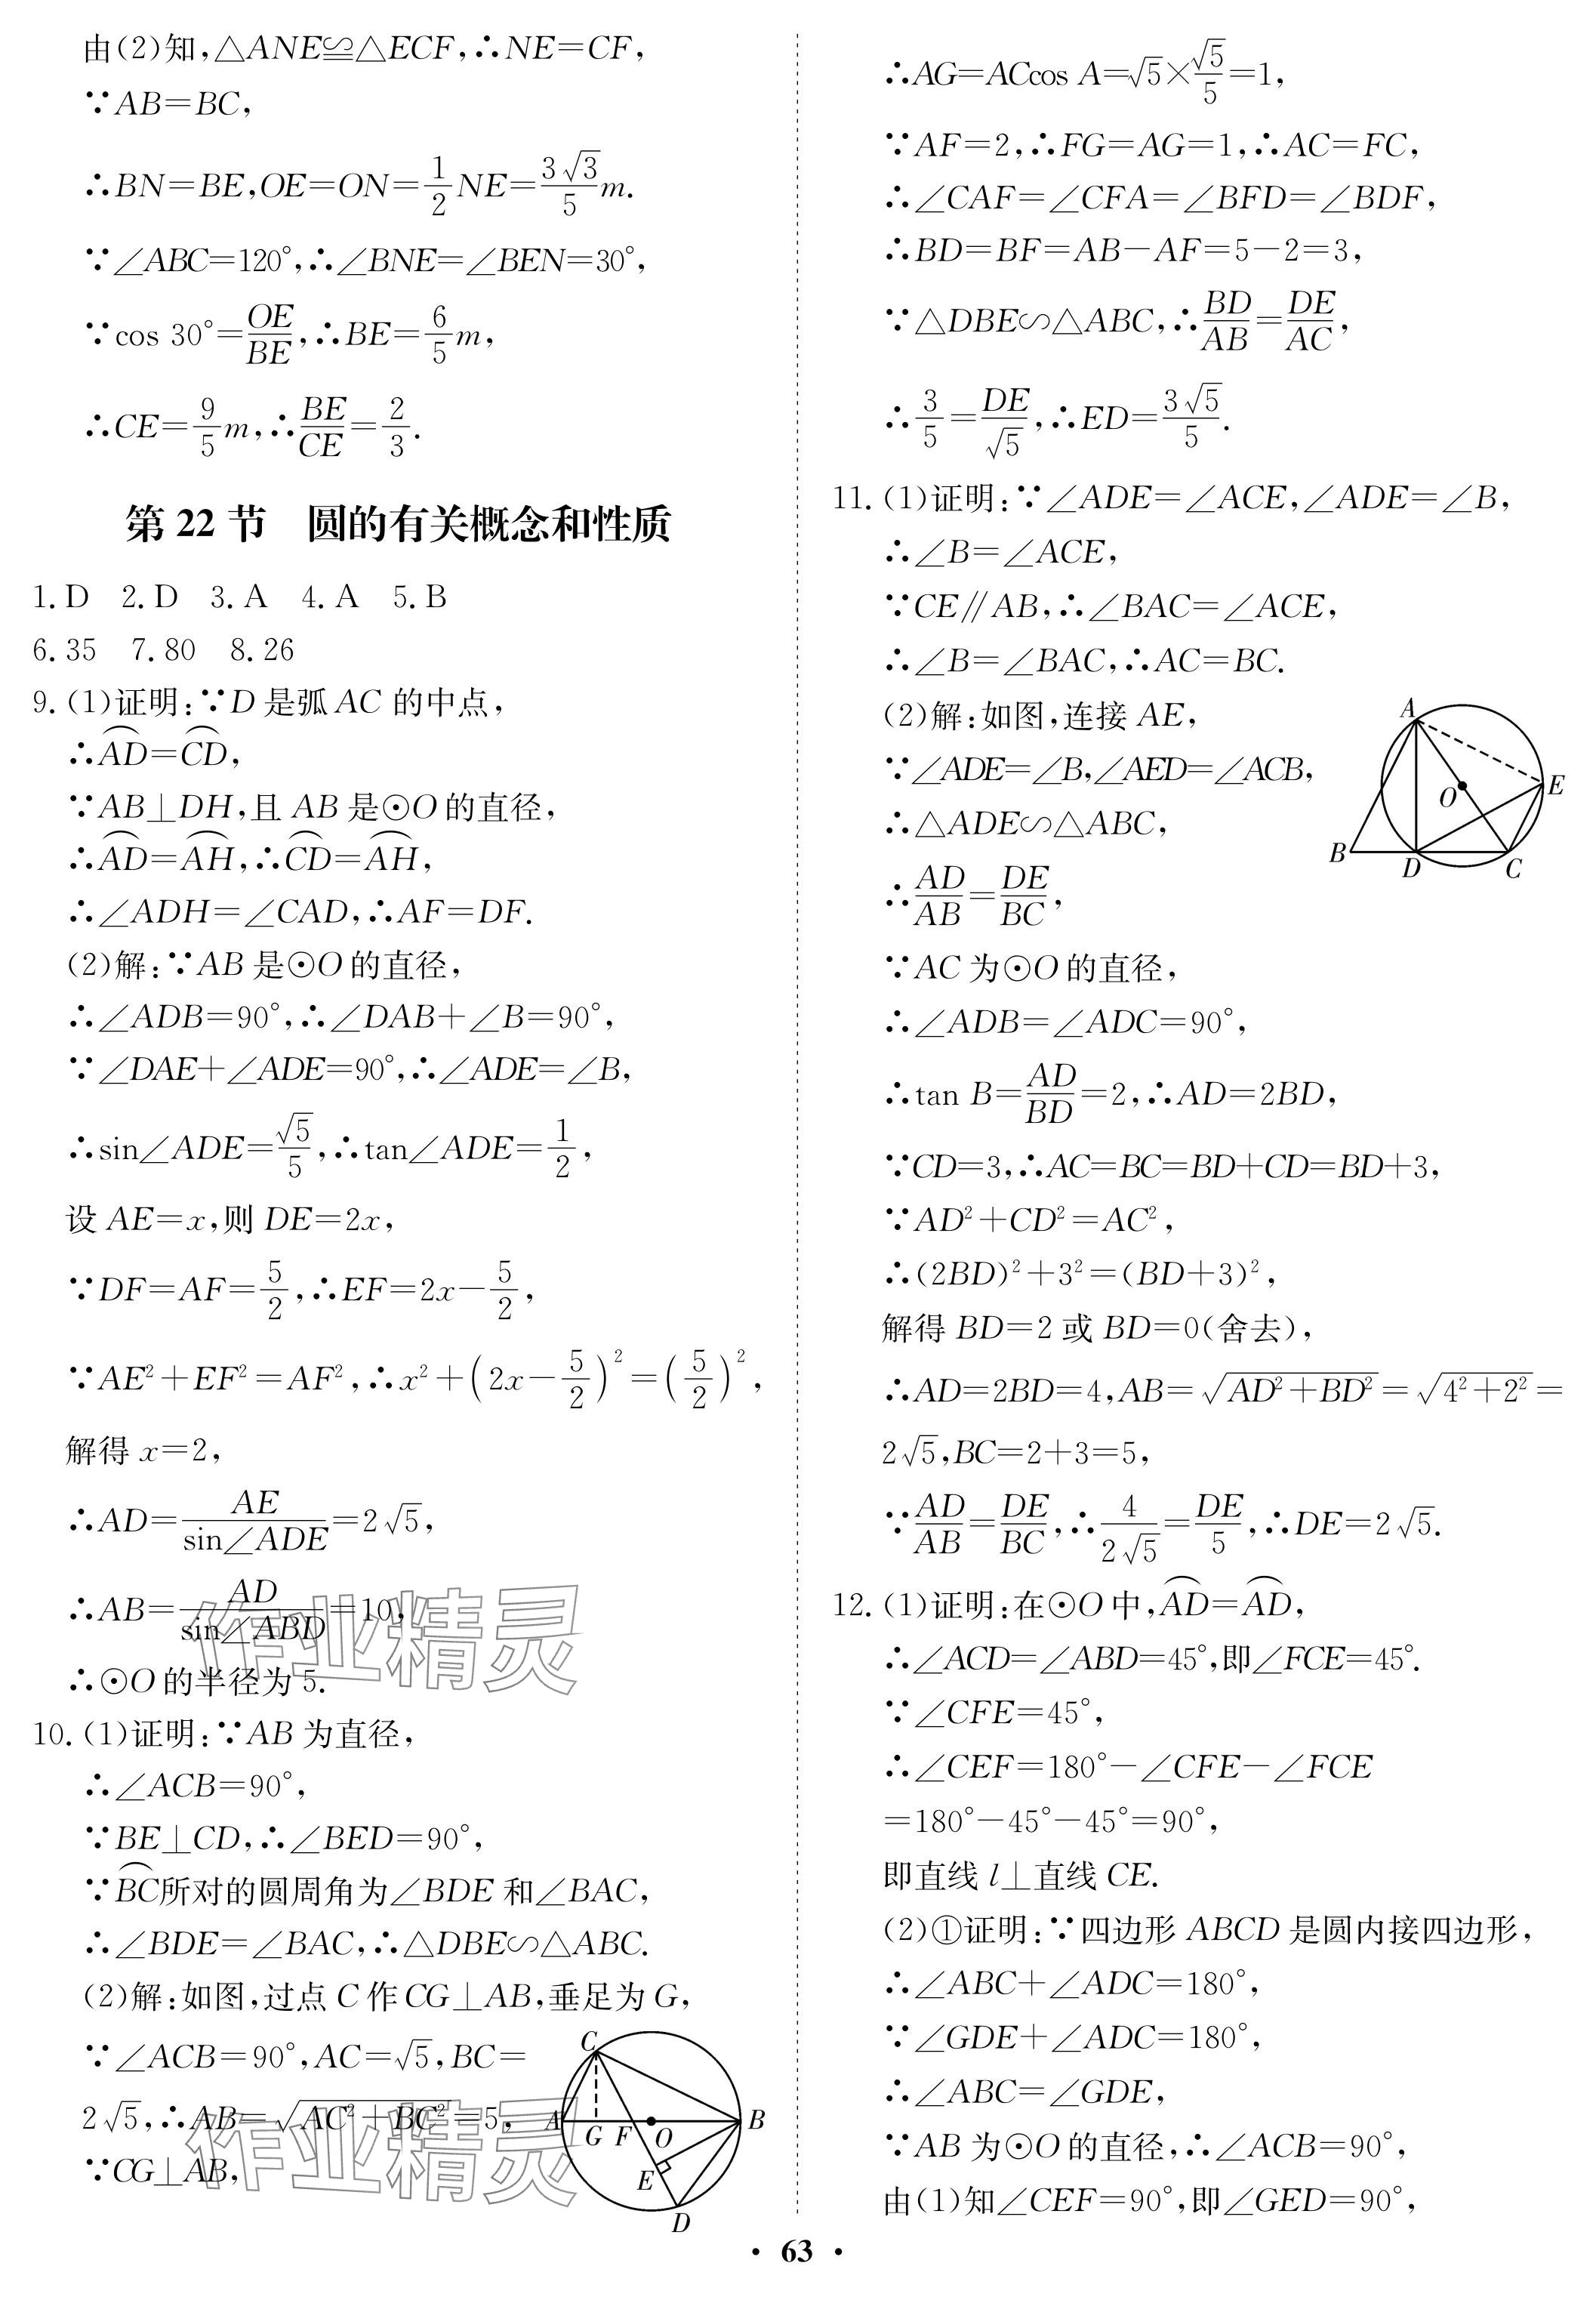 由(2)知,△ANE≌△ECF,∴NE=CF,
∵AB=BC,
∴BN=BE,OE=ON=1/2 NE=3√3/5 m.
∵∠ABC=120°,∴∠BNE=∠BEN=30°,
∵cos 30°=OE/BE,∴BE=6/5 m,
∴CE=9/5 m,∴BE/CE=2/3.
第 22 节 圆的有关概念和性质
1.D 2.D 3.A 4.A 5.B
6.35 7.80 8.26
9.(1)证明:∵D 是弧 AC 的中点,
∴⌒AD=⌒CD,
∵AB⊥DH,且 AB 是⊙O 的直径,
∴⌒AD=⌒AH,∴⌒CD=⌒AH,
∴∠ADH=∠CAD,∴AF=DF.
(2)解:∵AB 是⊙O 的直径,
∴∠ADB=90°,∴∠DAB+∠B=90°,
∵∠DAE+∠ADE=90°,∴∠ADE=∠B,
∴sin∠ADE=√5/5,∴tan∠ADE=1/2,
设 AE=x,则 DE=2x,
∵DF=AF=5/2,∴EF=2x-5/2,
∵AE²+EF²=AF²,∴x²+(2x-5/2)²=(5/2)²,
解得 x=2,
∴AD=AE/sin∠ADE=2√5,
∴AB=AD/sin∠ABD=10,
∴⊙O 的半径为 5.
10.(1)证明:∵AB 为直径,
∴∠ACB=90°,
∵BE⊥CD,∴∠BED=90°,
∵⌒BC所对的圆周角为∠BDE 和∠BAC,
∴∠BDE=∠BAC,∴△DBE∽△ABC.
(2)解:如图,过点 C 作 CG⊥AB,垂足为 G,
∵∠ACB=90°,AC=√5,BC=
2√5,∴AB=√(AC²+BC²)=5,
∵CG⊥AB,
C
A
G
F
O
B
E
D
作业精灵
作业精灵
∴AG=ACcos A=√5×√5/5=1,
∵AF=2,∴FG=AG=1,∴AC=FC,
∴∠CAF=∠CFA=∠BFD=∠BDF,
∴BD=BF=AB-AF=5-2=3,
∵△DBE∽△ABC,∴BD/AB=DE/AC,
∴3/5=DE/√5,∴ED=3√5/5.
11.(1)证明:∵∠ADE=∠ACE,∠ADE=∠B,
∴∠B=∠ACE,
∵CE∥AB,∴∠BAC=∠ACE,
∴∠B=∠BAC,∴AC=BC.
(2)解:如图,连接 AE,
∵∠ADE=∠B,∠AED=∠ACB,
∴△ADE∽△ABC,
∴AD/AB=DE/BC,
A
E
O
B
D
C
∵AC 为⊙O 的直径,
∴∠ADB=∠ADC=90°,
∴tan B=AD/BD=2,∴AD=2BD,
∵CD=3,∴AC=BC=BD+CD=BD+3,
∵AD²+CD²=AC²,
∴(2BD)²+3²=(BD+3)²,
解得 BD=2 或 BD=0(舍去),
∴AD=2BD=4,AB=√(AD²+BD²)=√(4²+2²)=
2√5,BC=2+3=5,
∵AD/AB=DE/BC,∴4/(2√5)=DE/5,∴DE=2√5.
12.(1)证明:在⊙O 中,⌒AD=⌒AD,
∴∠ACD=∠ABD=45°,即∠FCE=45°.
∵∠CFE=45°,
∴∠CEF=180°-∠CFE-∠FCE
=180°-45°-45°=90°,
即直线 l⊥直线 CE.
(2)①证明:∵四边形 ABCD 是圆内接四边形,
∴∠ABC+∠ADC=180°,
∵∠GDE+∠ADC=180°,
∴∠ABC=∠GDE,
∵AB 为⊙O 的直径,∴∠ACB=90°,
由(1)知∠CEF=90°,即∠GED=90°,
· 63 ·